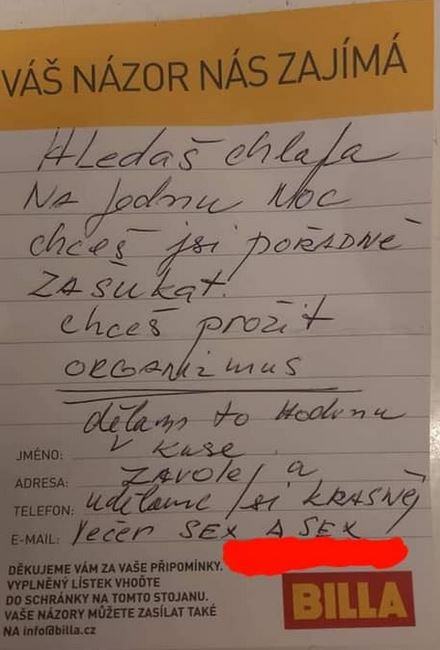 VÁŠ NÁZOR NÁS ZAJÍMÁ
Hledaš chlapa
Na jednu Noc
chceš jsi pořadně
zašukat.
chceš prožit
organizmus
dělam to Hodinu
JMÉNO: v kuse.
ADRESA: zavolej a
TELEFON: uděláme jsi krasnej
E-MAIL: večer sex a sex
DĚKUJEME VÁM ZA VAŠE PŘIPOMÍNKY.
VYPLNĚNÝ LÍSTEK VHOĎTE
DO SCHRÁNKY NA TOMTO STOJANU.
VAŠE NÁZORY MŮŽETE ZASÍLAT TAKÉ
NA info@billa.cz
BILLA